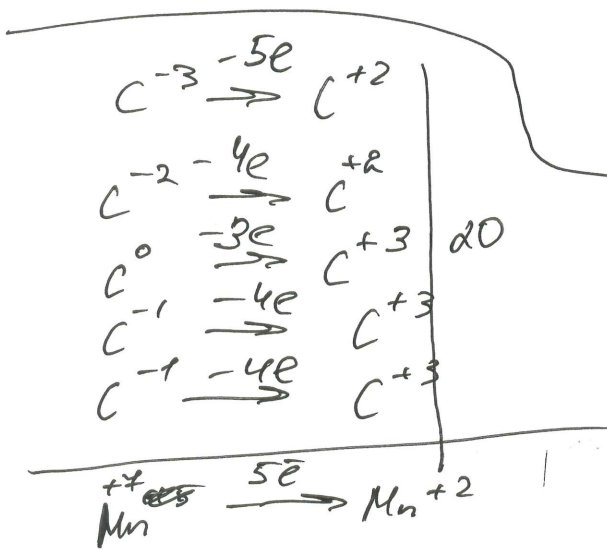 C⁻³ -5e → C⁺²
C⁻² -4e → C⁺²
C⁰ -3e → C⁺³ 20
C⁻¹ -4e → C⁺³
C⁻¹ -4e → C⁺³
Mn⁺⁷ 5ē → Mn⁺²